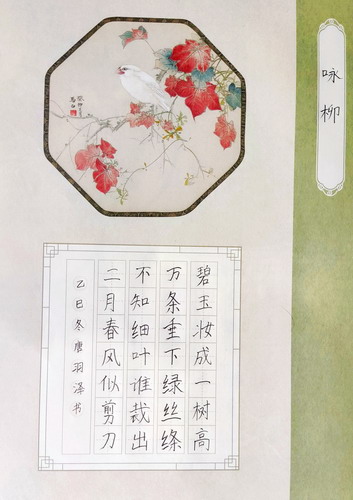 咏柳
碧玉妆成一树高
万条垂下绿丝绦
不知细叶谁裁出
二月春风似剪刀
乙巳冬唐羽泽书